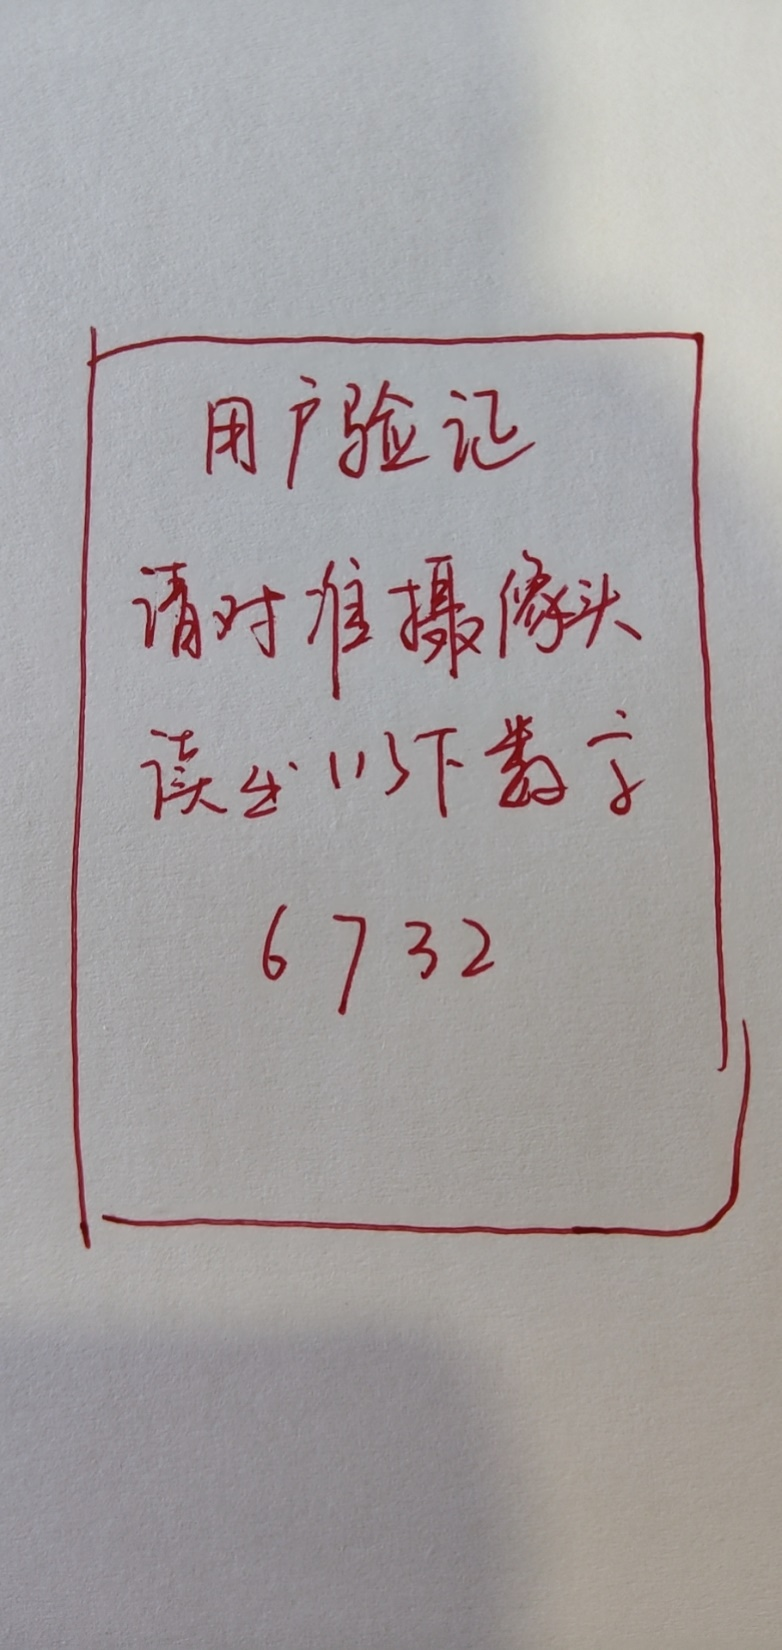 用户验证
请对准摄像头
读出以下数字
6732